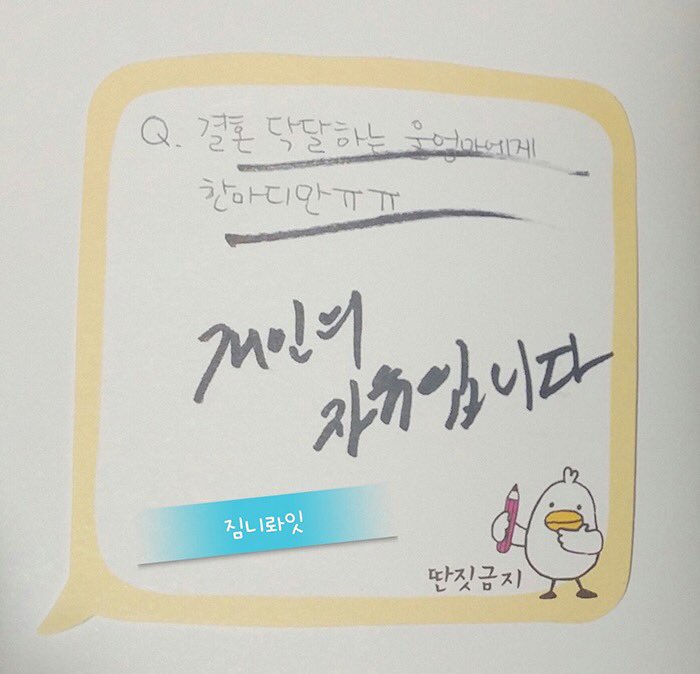 Q. 결혼 닥달하는 울엄마에게
한마디만ㅠㅠ
개인의
자유입니다
짐니롸잇
딴짓금지